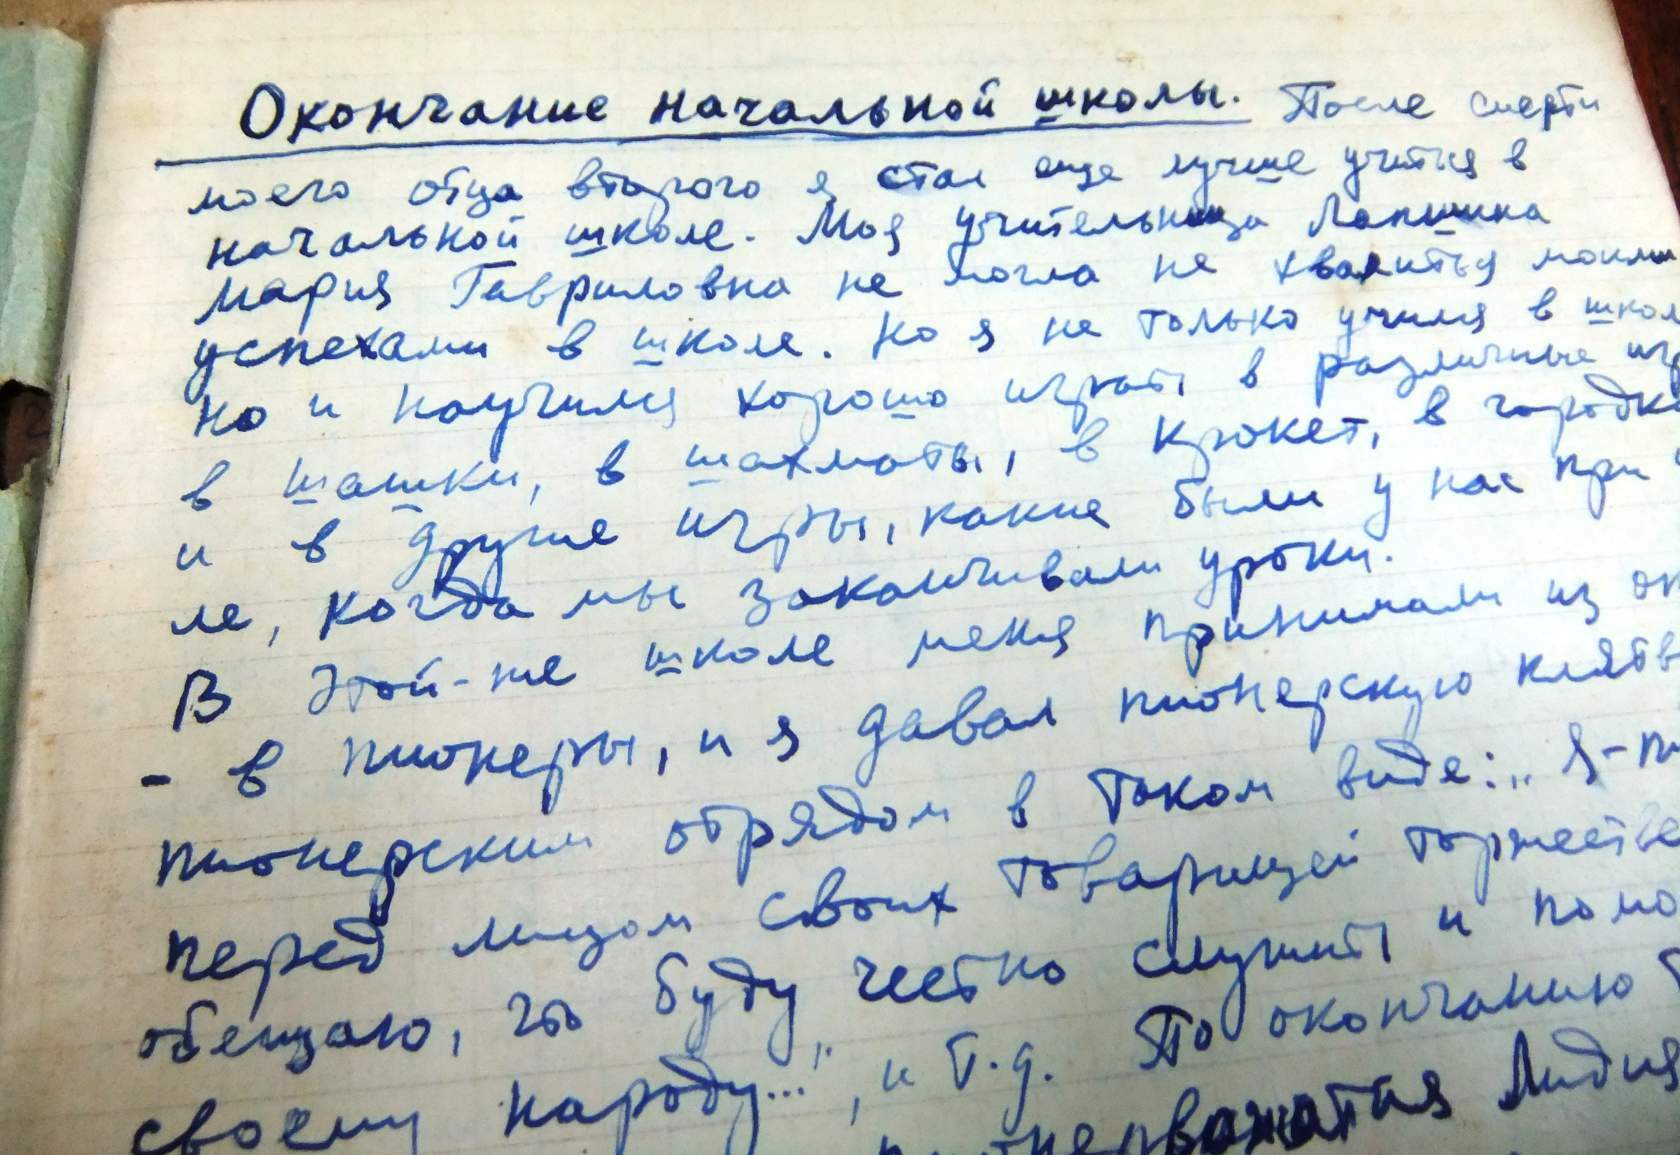 Окончание начальной школы. После смерти
моего отца второго я стал еще лучше учиться в
начальной школе. Моя учительница Лапшина
Мария Гавриловна не могла не хвалиться моими
успехами в школе. Но я не только учился в школ
но и научился хорошо играть в различные игр
в шашки, в шахматы, в крокет, в городки
и в другие игры, какие были у нас при
ле, когда мы заканчивали уроки.
В этой-же школе меня принимали из ок
- в пионеры, и я давал пионерскую клятв
пионерским отрядом в таком виде: „Я-пи
перед лицом своих товарищей торжестве
обещаю, что буду честно служить и помо
своему народу...", и т.д. По окончанию
пионервожатая Лидия